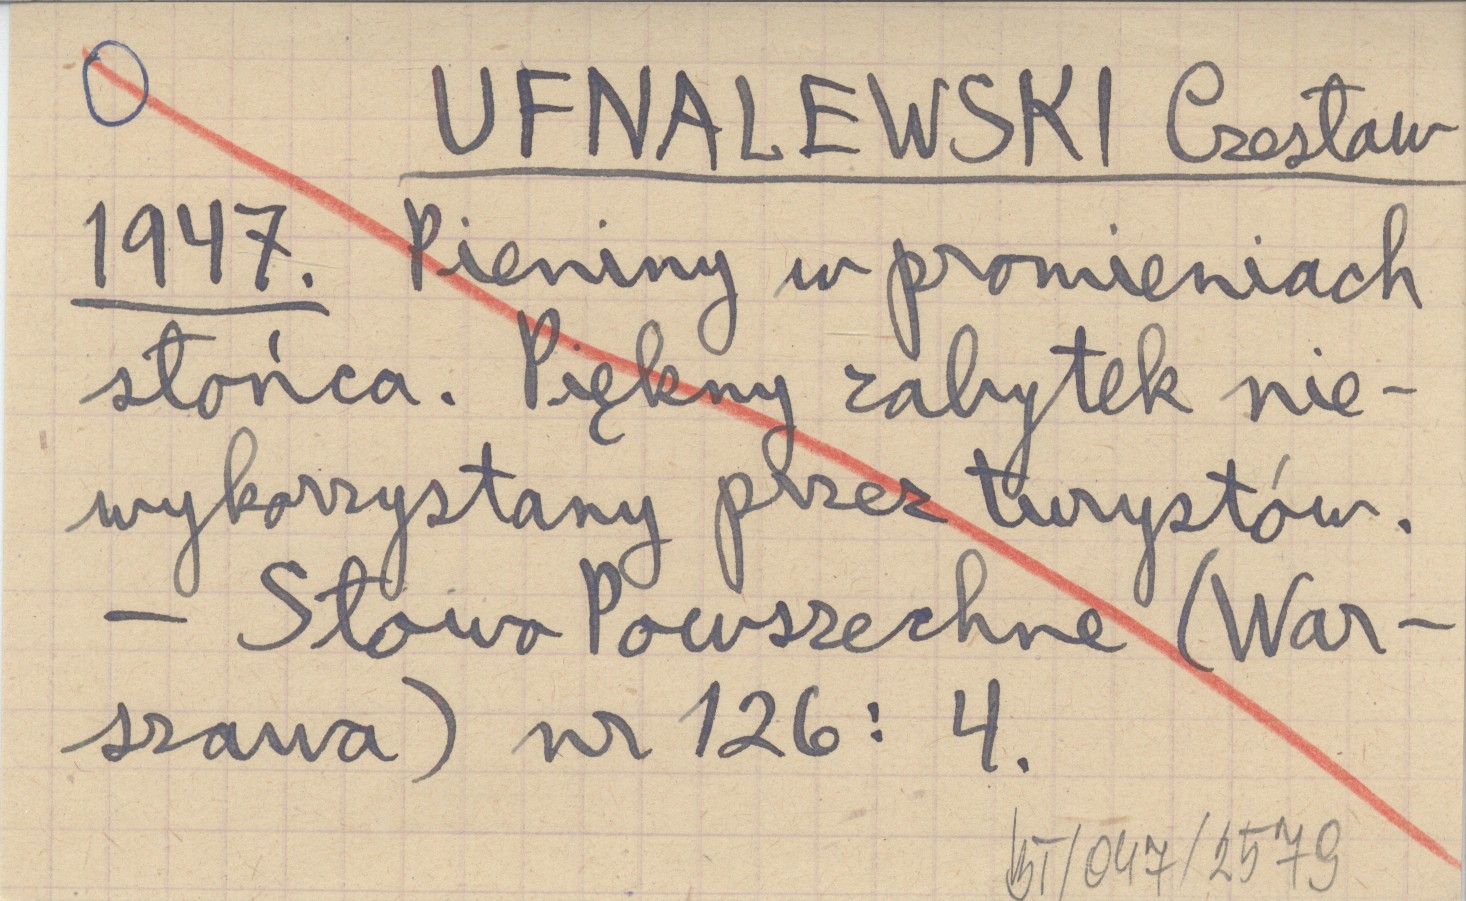 UFNALEWSKI Czesław
1947. Pieniny w promieniach
słońca. Piękny zabytek nie-
wykorzystany przez turystów.
- Słowo Powszechne (War-
szawa) nr 126: 4.
/047/2579